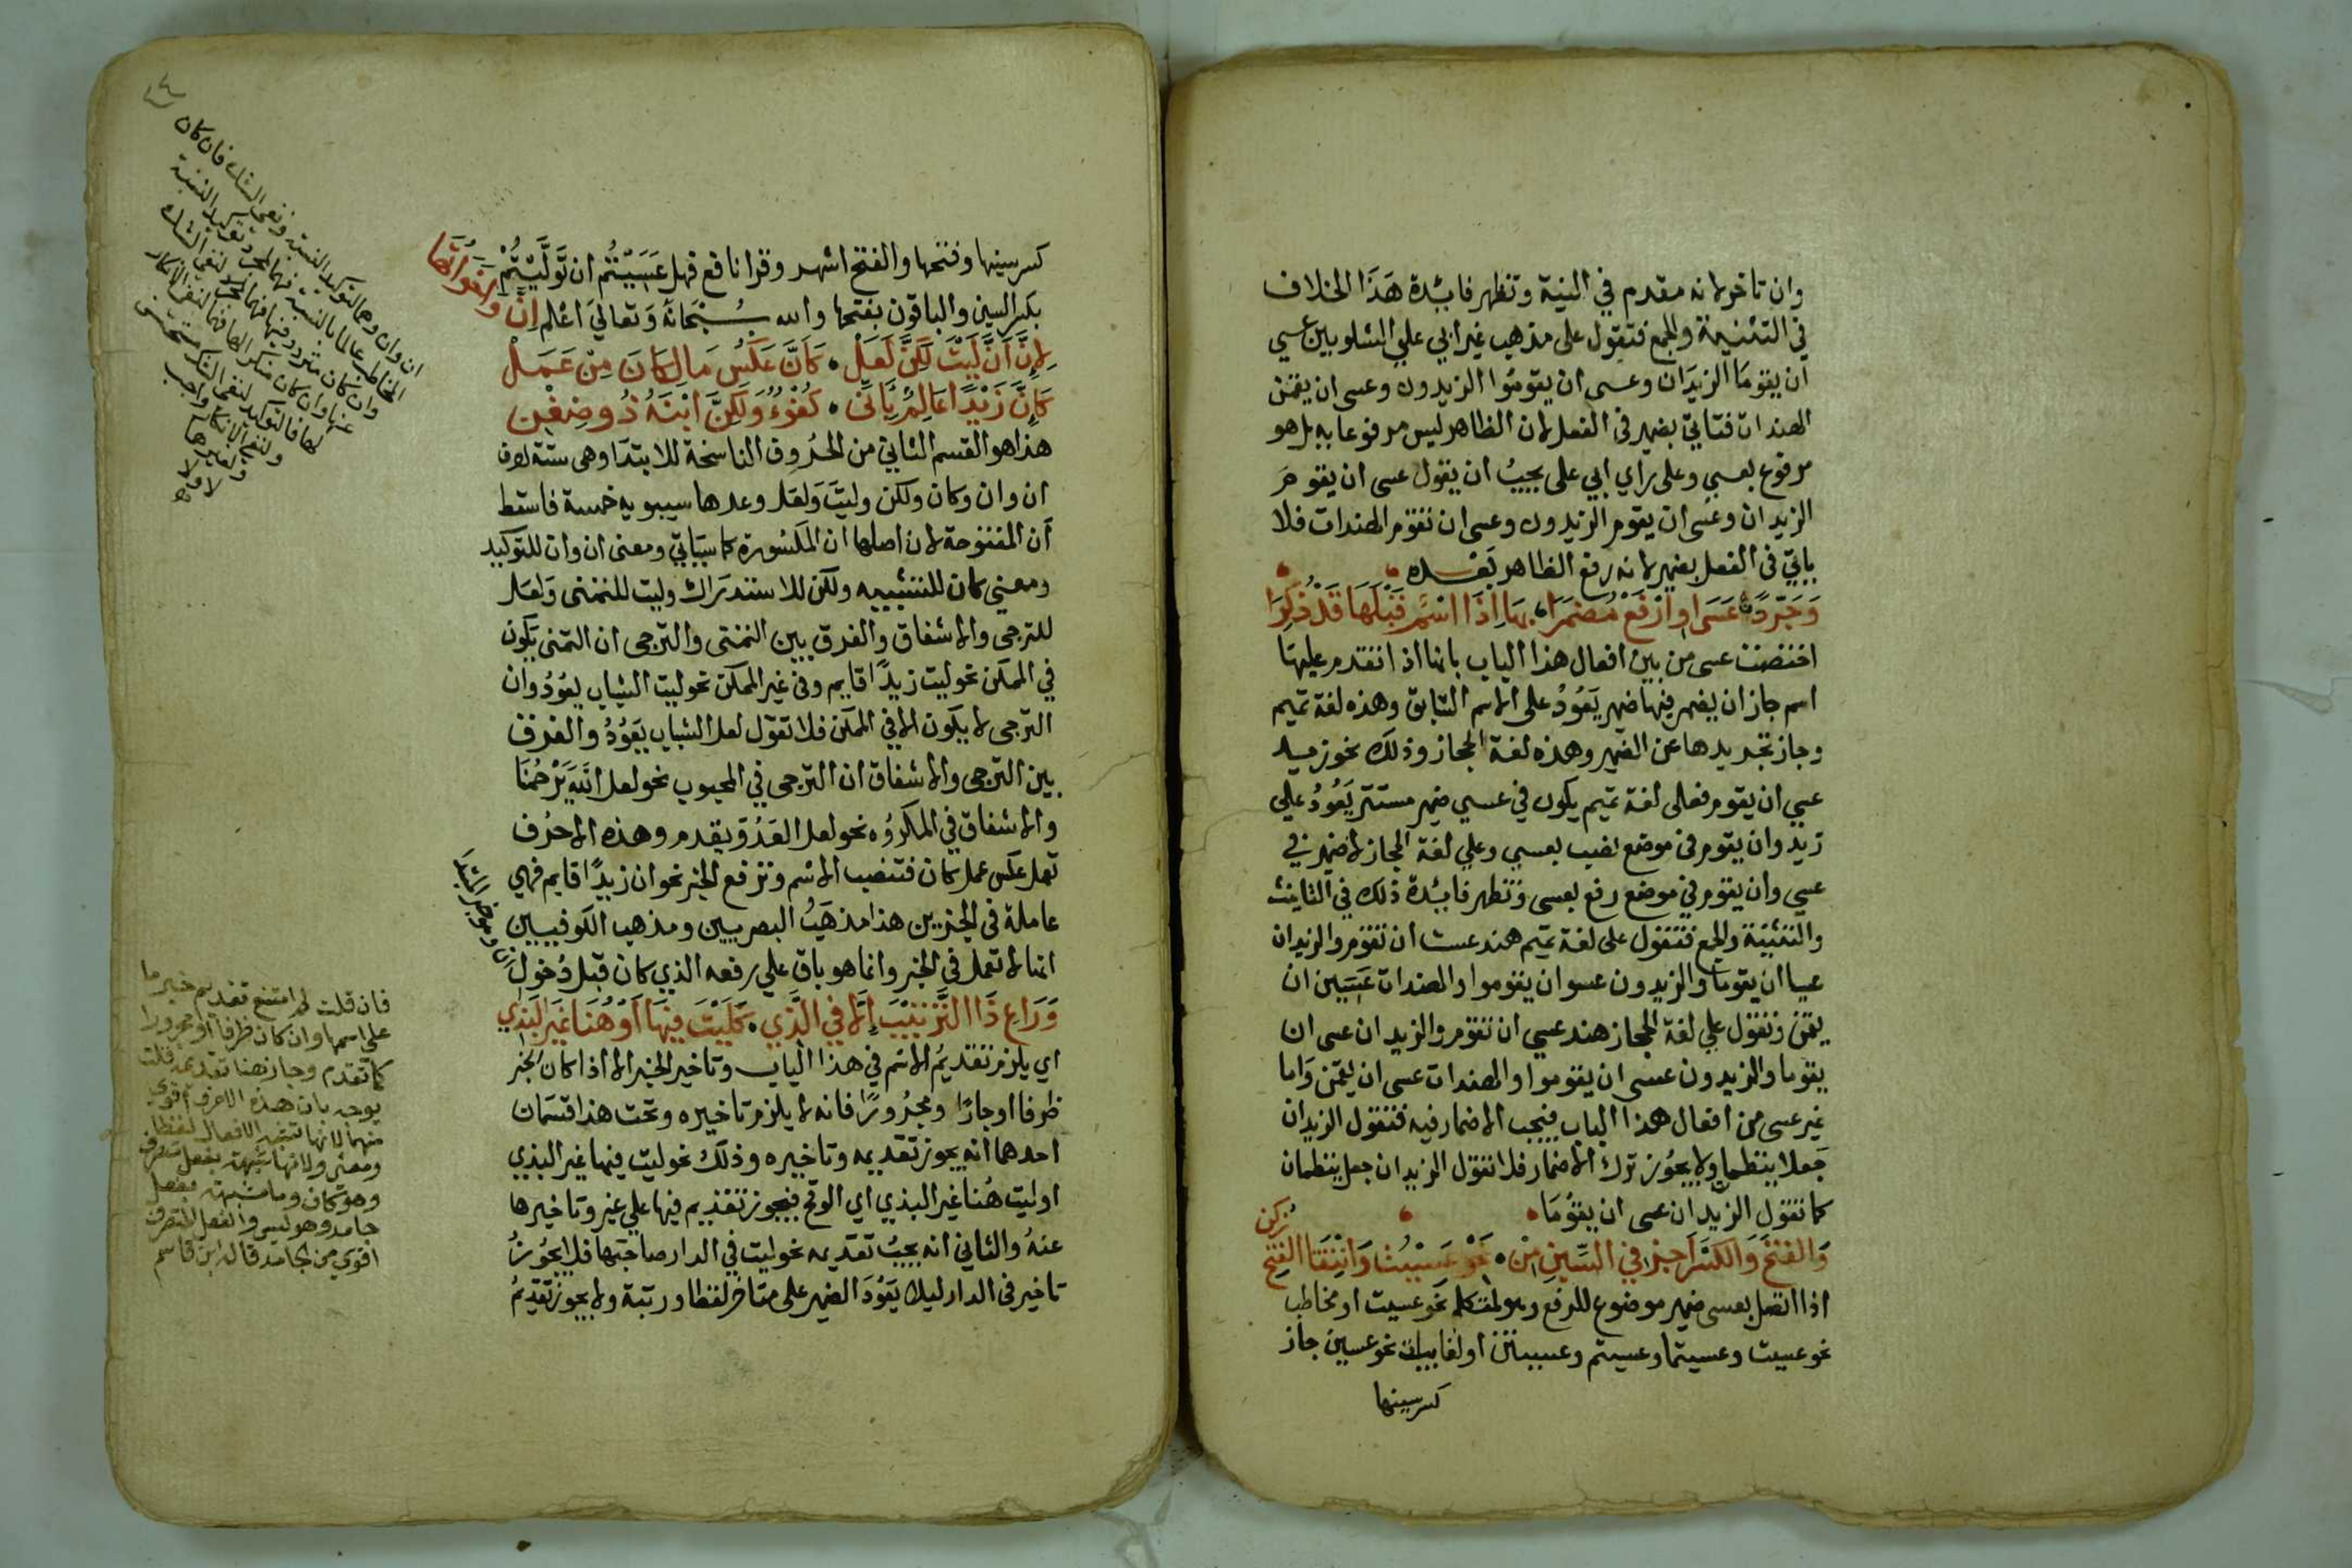 وان تاخر لانه مقدم في النية وتظهر فائدة هَذَا الخلاف
في التثنية والجمع فتقول على مذهب غير ابي علي الشلوبين عسي
ان يقومَا الزيدَان وعسى ان يقومُوا الزيدون وعسى ان يقمن
الهندات فتاتي بضمير في الفعل لان الظاهر ليس مرفوعا به بل هو
مرفوع بعسي وعلى راي ابي على يجيبُ ان يقول عسى ان يقومَ
الزيدان وعسَى ان يقوم الزيدون وعسى ان تقوم الهندات فلا
ياتي في الفعل بضمير لانه رفع الظاهر بَعْده
وَجَرِّدًا عَسَى اوِ ارْفَعْ مُضمَرَا، بهَا اِذَا اسْمٌ قَبْلَهَا قَدْ ذُكِرَا
اختصت عسى من بين افعال هذا الباب بانها اذا تقدم عليهَا
اسم جاز ان يضمر فيها ضمير يَعُودُ على الاسم السابق وهذه لغة تميم
وجاز تجريدها عن الضمير وهذه لغة الحجاز وذلك نحو زيد
عسى ان يقوم فعلى لغة تميم يكون في عسي ضمير مستتر يَعُودُ علي
زيد وان يقوم في موضع نصب بعسي وعلي لغة الحجاز لا ضمير في
عسي وان يقوم في موضع رفع بعسى وتظهر فائدة ذلك في التانيث
والتثنية والجمع فتقول على لغة تميم هند عست ان تقوم والزيدان
عسيا ان يقوما والزيدون عسوا ن يقوموا والهندات عَسَين ان
يقمن وتقول علي لغة الحجاز هند عسي ان تقوم والزيدان عسى ان
يقوما والزيدون عسى ان يقوموا والهندات عسى ان يقمن وَاما
غير عسى من افعال هذا الباب فيجب الاضمار فيه فتقول الزيدان
جَعلا ينظمان ولا يجُوز ترك الاضمار فلا تقول الزيدان جعل ينظمان
كما تقول الزيدان عسى ان يقومَا
وَالفتحَ وَالكسْرَ اجِزْ في السِّينِ مِنْ ، نَحْوِ عَسَيْتُ وَانْتِقَا الفَتْحِ زُكِنْ
اذا اتصل بعسى ضمير موضوع للرفع وهو لمتكلم نحو عسيت او مخاطب
نحو عسيت وعسيتما وعسيتم وعسيتن او لغايبات نحو عسين جاز
كسر سينها
كسر سينها وفتحها والفتح اشهر وقرا نافع فهل عَسَيْتُم ان تَوَلَّيْتُمْ
بكسر السين والباقون بفتحها والله سُبْحَانَهُ وَتعَالى اَعْلم اِنَّ واخواتها
لِاِنَّ اَنَّ لَيْتَ لَكِنَّ لَعَلْ ، كَاَنَّ عَكْسُ مَا لِكَانَ مِنْ عَمَلْ
كَاِنَّ زَيْدًا عَالِمٌ بِاَنِّى ، كُفْؤٌ وَلَكِنَّ ابْنَهُ ذُو ضِغْنِ
هذا هو القسم الثاني من الحُروف الناسخة للابتدَا وهى ستة احرف
ان وان وكان ولكن وليتَ وَلعَل وعدها سيبويه خمسة فاسقط
اَن المفتوحة لان اصلها ان المكسُورة كما سيَاتي ومعنى ان وان للتوكيد
ومعنى كان للتشبيه ولكن للاستدرَاك وليت للتمنى وَلعَل
للترجى والاشفاق والفرق بين التمنى والترجى ان التمنى يكون
في الممكن نحو ليت زيدًا قايم وفي غير الممكن نحو ليت الشباب يعُودُ وان
الترجى لا يكون الا في الممكن فلا تقول لعل الشباب يَعُودُ والفرق
بين الترجى والاشفاق ان الترجى في المحبوب نحو لعل اللهَ يَرْحَمُنَا
والاشفاق في المكرُوه نحو لعل العَدُوَّ يقدم وهذه الاحرُف
تعمل عكس عمل كان فتنصب الاسْم وترفع الخبر نحو ان زيدًا قايم فهي
عاملة في الجزين هذا مذهَبُ البصريين ومذهب الكوفيين
انها لا تعمل في الخبر وانما هو باق علي رفعه الذي كان قبل دُخول
وَرَاعِ ذَا التَّرْتِيْبَ اِلَّا في الَّذِي ، كَلَيْتَ فِيْهَا اَوْ هُنَا غَيْرَ البَذِي
اي يلزم تقديمُ الاسْم في هذا الباب وتاخير الخبر الا اذا كان الخبر
ظرفا او جارًا ومجرُورًا فانه لا يلزم تاخيره وتحت هذا قسمَان
احدهما انه يجوز تقديمه وتاخيره وذلك نحو ليت فيها غير البذي
او ليت هُنا غير البذي اي الوقح فيجوز تقديم فيها علي غير وتاخيرها
عنهُ والثاني انه يجبُ تقديمه نحو ليت في الدار صاحبها فلا يجُوز
تاخير في الدار ليلا يَعُودَ الضمير على متاخر لفظا ورتبة ولا يجوز تقديمُ
فان قلت لم امتنع تقديم خبر ما
على اسمها وان كان ظرفا او مجرورا
كما تقدم وجاز هنا تقديمه قلت
يوجه بان هذه الاحرف اقوى
منها لانها تشبه الافعال لفظا
ومعنى ولانها شبهت بفعل متصرف
وهو كان وما مشبهة بفعل
جامد وهو ليس والفعل المتصرف
اقوي من الجامد قاله ابن قاسم
ان وان وهما لتوكيد النسبة ونفى الشك فان كان
المخاطب عالما بالنسبة فهما لمجرد توكيد النسبة
وان كان مترددا فيها فهما لنفى الشك
عنها وان كان منكرا لها فهما لنفى الانكار